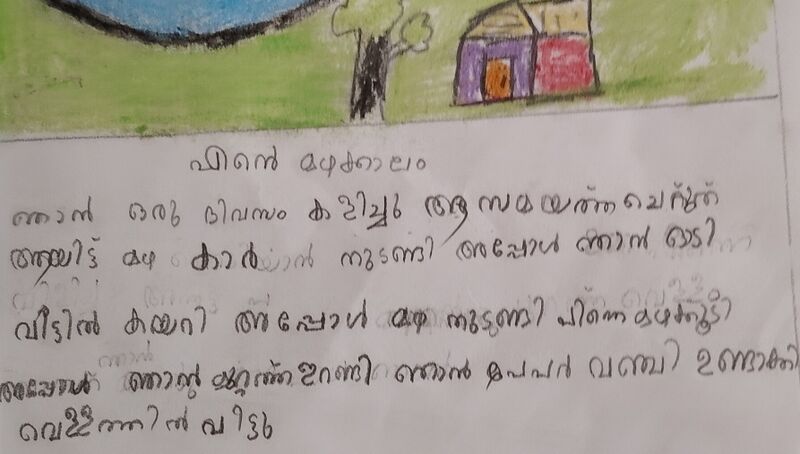 എന്റെ മഴക്കാലം
ഞാൻ ഒരു ദിവസം കളിച്ചു ആ സമയത്ത് ചെറുത്
ആയിട്ട് മഴ കാർ യാൻ തുടങ്ങി അപ്പോൾ ഞാൻ ഓടി
വീട്ടിൽ കയറി അപ്പോൾ മഴ തുടങ്ങി പിന്നെ മഴക്കൂടി
അപ്പോൾ ഞാൻ മുറ്റത്ത് ഇറങ്ങി ഞാൻ പേപ്പർ വഞ്ചി ഉണ്ടാക്കി
വെള്ളത്തിൽ വിട്ടു